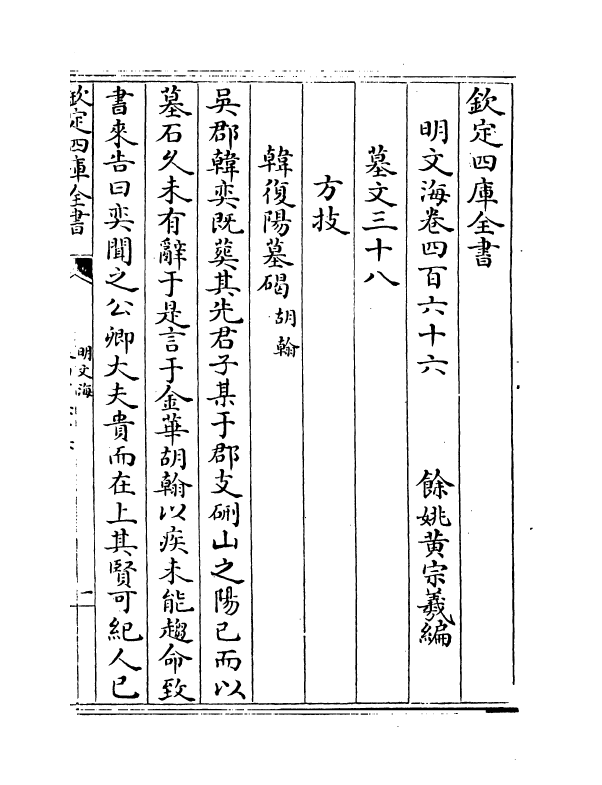 欽定四庫全書
明文海卷四百六十六　　餘姚黄宗羲編
墓文三十八
方技
韓復陽墓碣 胡翰
吳郡韓奕既葬其先君子某于郡支硎山之陽已而以
墓石久未有辭于是言于金華胡翰以疾未能趨命致
書來告曰奕聞之公卿大夫貴而在上其賢可紀人已
欽定四庫全書
明文海
一